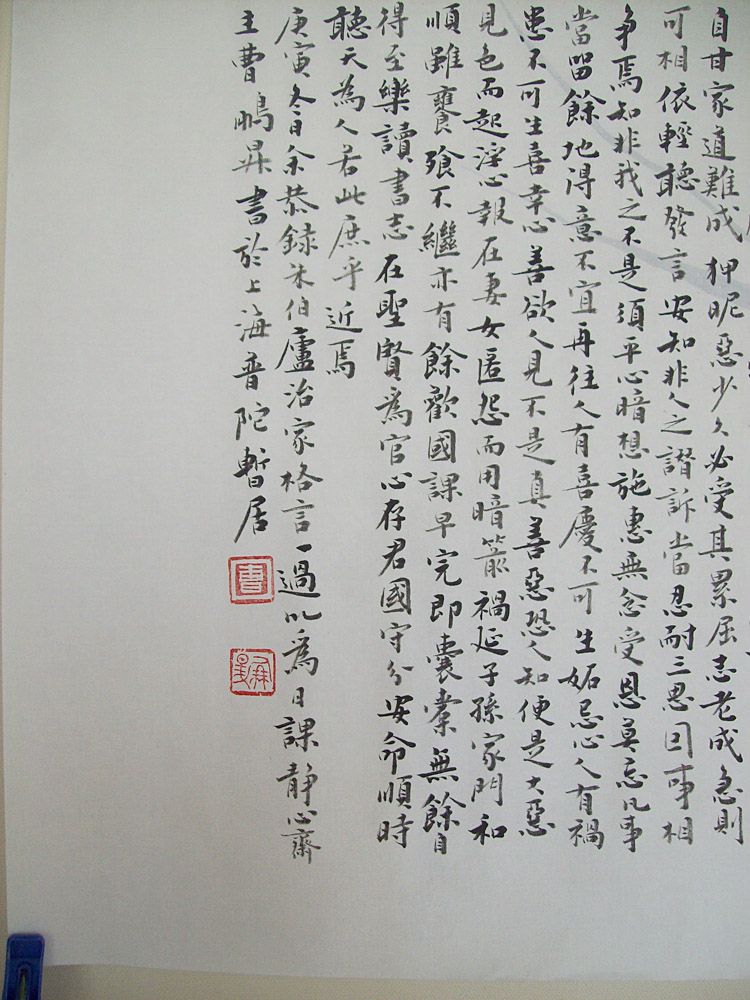 自甘家道難成狎昵惡少久必受其累屈志老成急則
可相依輕聽發言安知非人之譖訴當忍耐三思因事相
爭焉知非我之不是須平心暗想施惠無念受恩莫忘凡事
當留餘地得意不宜再往人有喜慶不可生妬忌心人有禍
患不可生喜幸心善欲人見不是真善惡恐人知便是大惡
見色而起淫心報在妻女匿怨而用暗箭禍延子孫家門和
順雖饔飧不繼亦有餘歡國課早完即囊橐無餘自
得至樂讀書志在聖賢為官心存君國守分安命順時
聽天為人若此庶乎近焉
庚寅冬日余恭録朱伯廬治家格言一過以為日課静心齋
主曹鵬昇書於上海普陀暫居
曹